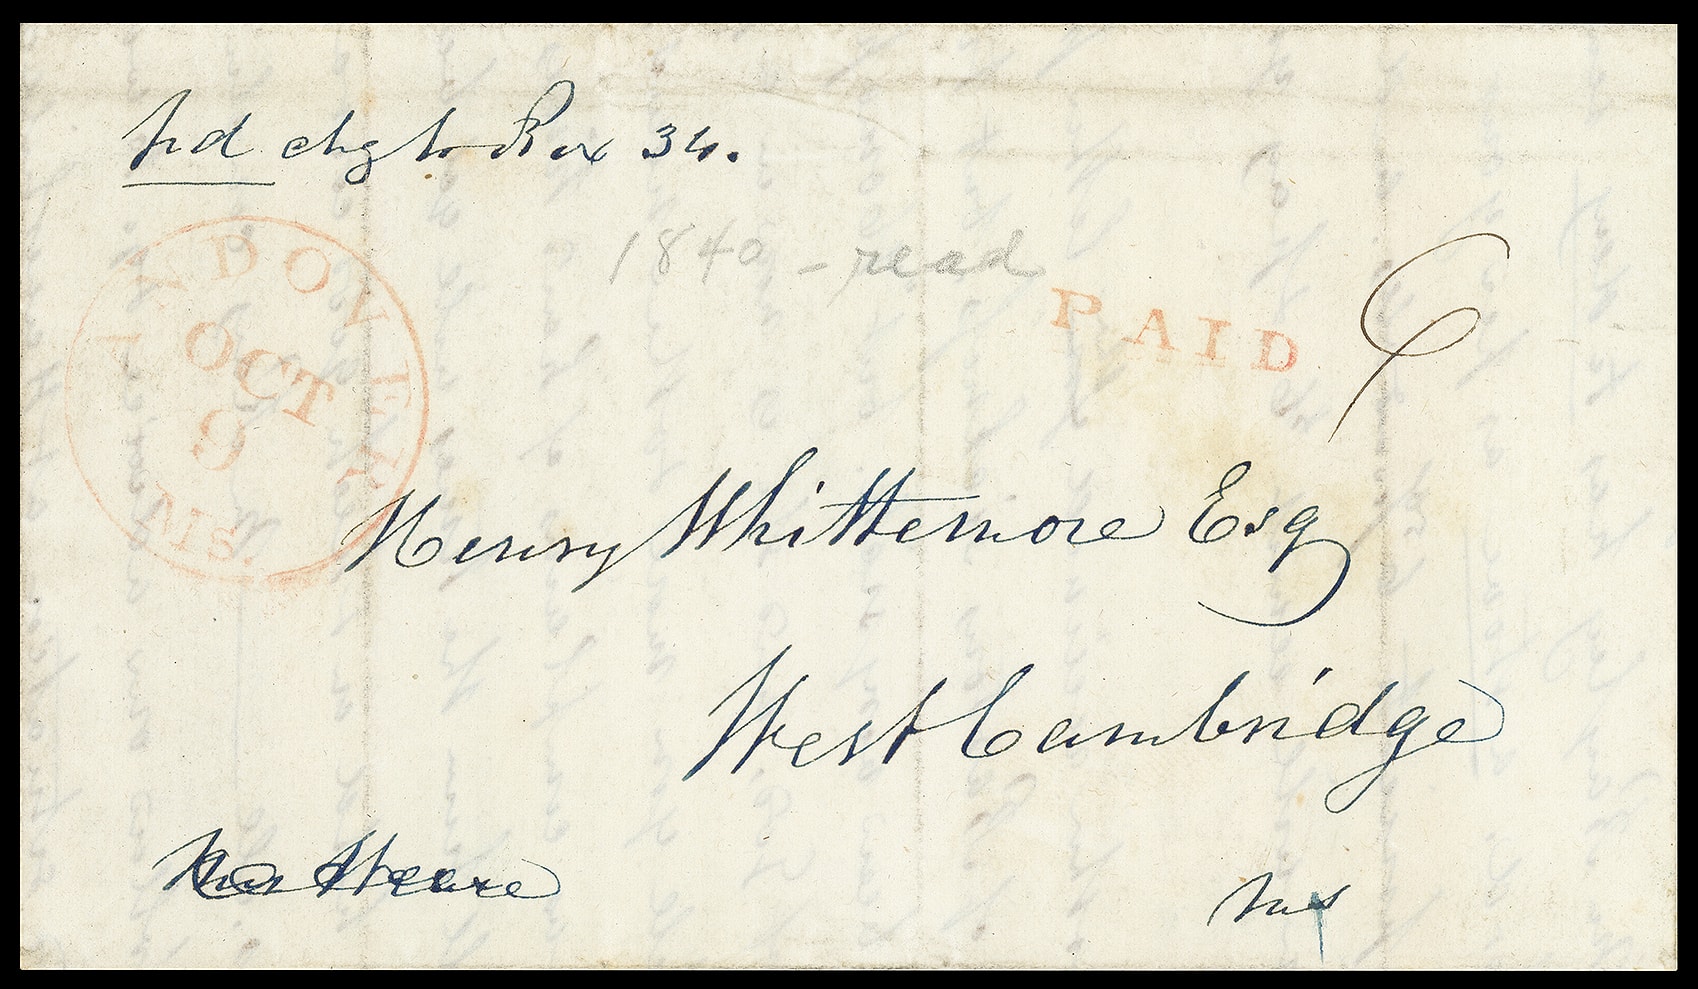 Pd chg to Box 34.
ANDOVER
OCT
9
Ms.
1840 - read
PAID 6
Henry Whittemore Esq
West Cambridge
Ms